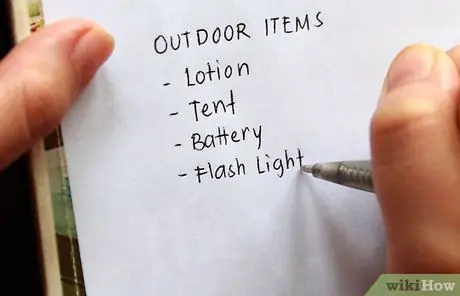 OUTDOOR ITEMS
- Lotion
- Tent
- Battery
- Flash Light
wikiHow